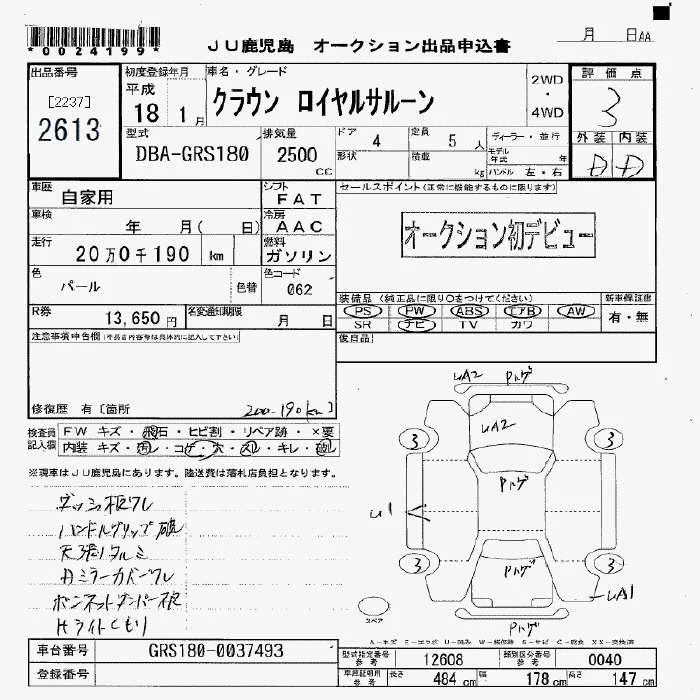 *0024199*
JU鹿児島 オークション出品申込書
月 日AA
出品番号
[2237]
2613
初度登録年月
平成
18 1月
車名・グレード
クラウン ロイヤルサルーン
2WD
・
4WD
評価点
3
外装 内装
D D
型式
DBA-GRS180
排気量
2500
CC
ドア 4
定員 5 人
ディーラー・並行
形状
積載 kg
モデル年式 年
ハンドル 左・右
車歴
自家用
シフト
FAT
セールスポイント(正常に機能するものに限ります)
車検
年 月( 日)
冷房
AAC
オークション初デビュー
走行
20万0千190 km
燃料
ガソリン
色
パール
色替
色コード
062
装備品(純正品に限り○をつけてください)
新車保証書
PS PW ABS エアB AW
SR ナビ TV カワ
有・無
R券
13,650円
名変通知期限
月 日
後良品
注意事項申告欄
修復歴 有〔箇所
200-190km〕
検査員記入欄
FW キズ・飛石・ヒビ割・リペア跡・×要
内装 キズ・汚レ・コゲ・穴・スレ・キレ・破レ
※現車はJU鹿児島にあります。陸送費は落札店負担となります。
ダッシュ板ワレ
ハンドルグリップ破
天張りタルミ
ボンネットダンパー
Hライトくもり
UA2 Pハゲ
UA2
3 3
Pハゲ
U1
3 3
Pハゲ
UA1
Pハゲ
スペア
車台番号
GRS180-0037493
登録番号
型式指定番号
参考
12608
類別区分番号
参考
0040
車庫証明用
参考
長さ 484 cm
幅 178 cm
高さ 147 cm